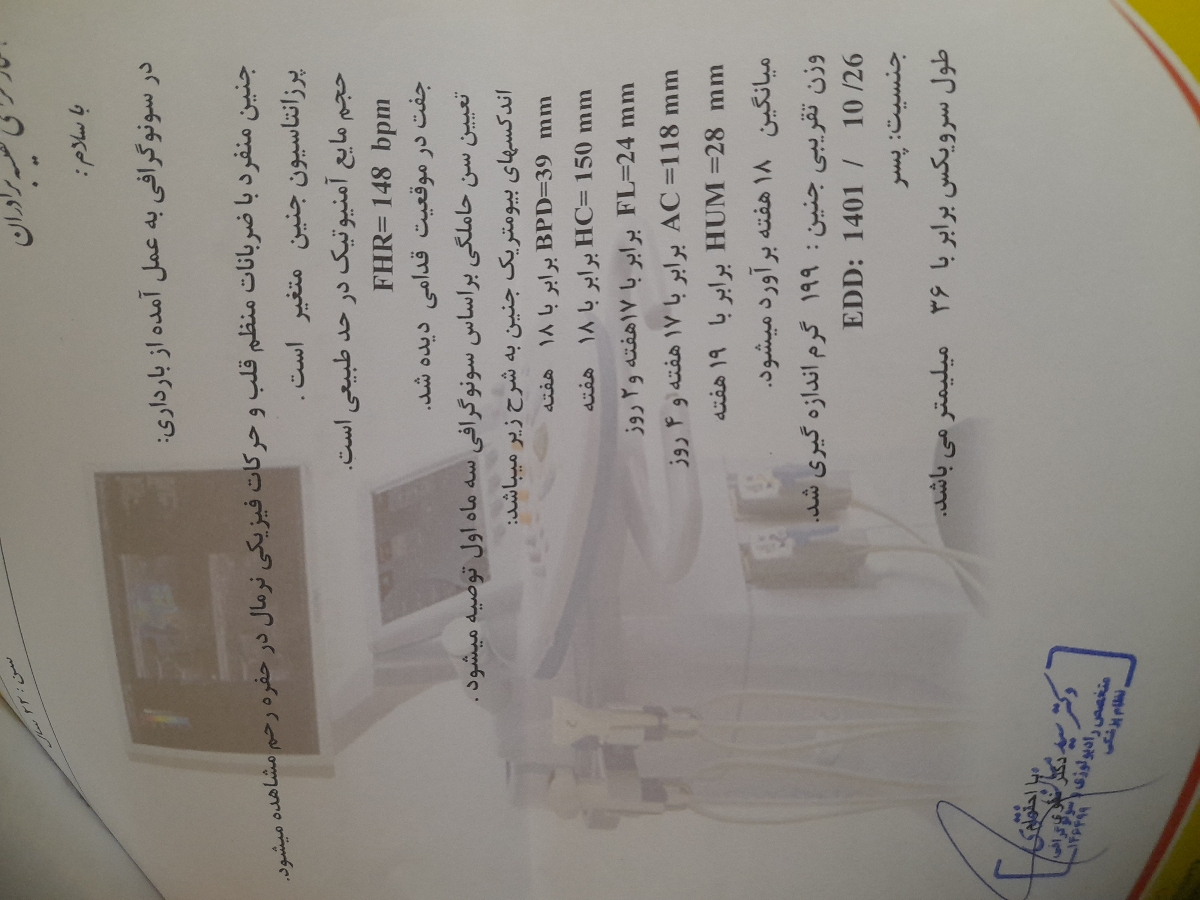 سن : ۲۳ سال
با سلام :
در سونوگرافی به عمل آمده از بارداری:
جنین منفرد با ضربانات منظم قلب و حرکات فیزیکی نرمال در حفره رحم مشاهده میشود.
پرزانتاسیون جنین متغیر است .
حجم مایع آمنیوتیک در حد طبیعی است.
FHR= 148 bpm
جفت در موقعیت قدامی دیده شد.
تعیین سن حاملگی براساس سونوگرافی سه ماه اول توصیه میشود .
اندکسهای بیومتریک جنین به شرح زیر میباشد:
BPD=39 mm برابر با ۱۸ هفته
HC= 150 mm برابر با ۱۸ هفته
FL=24 mm برابر با ۱۷هفته و ۲ روز
AC =118 mm برابر با ۱۷ هفته و ۴ روز
HUM =28 mm برابر با ۱۹ هفته
میانگین ۱۸ هفته برآورد میشود.
وزن تقریبی جنین : ۱۹۹ گرم اندازه گیری شد.
EDD: 1401 / 10 /26
جنسیت: پسر
طول سرویکس برابر با ۳۶ میلیمتر می باشد.
با احترام
دکتر سید
متخصص رادیولوژی و سونوگرافی
نظام پزشکی